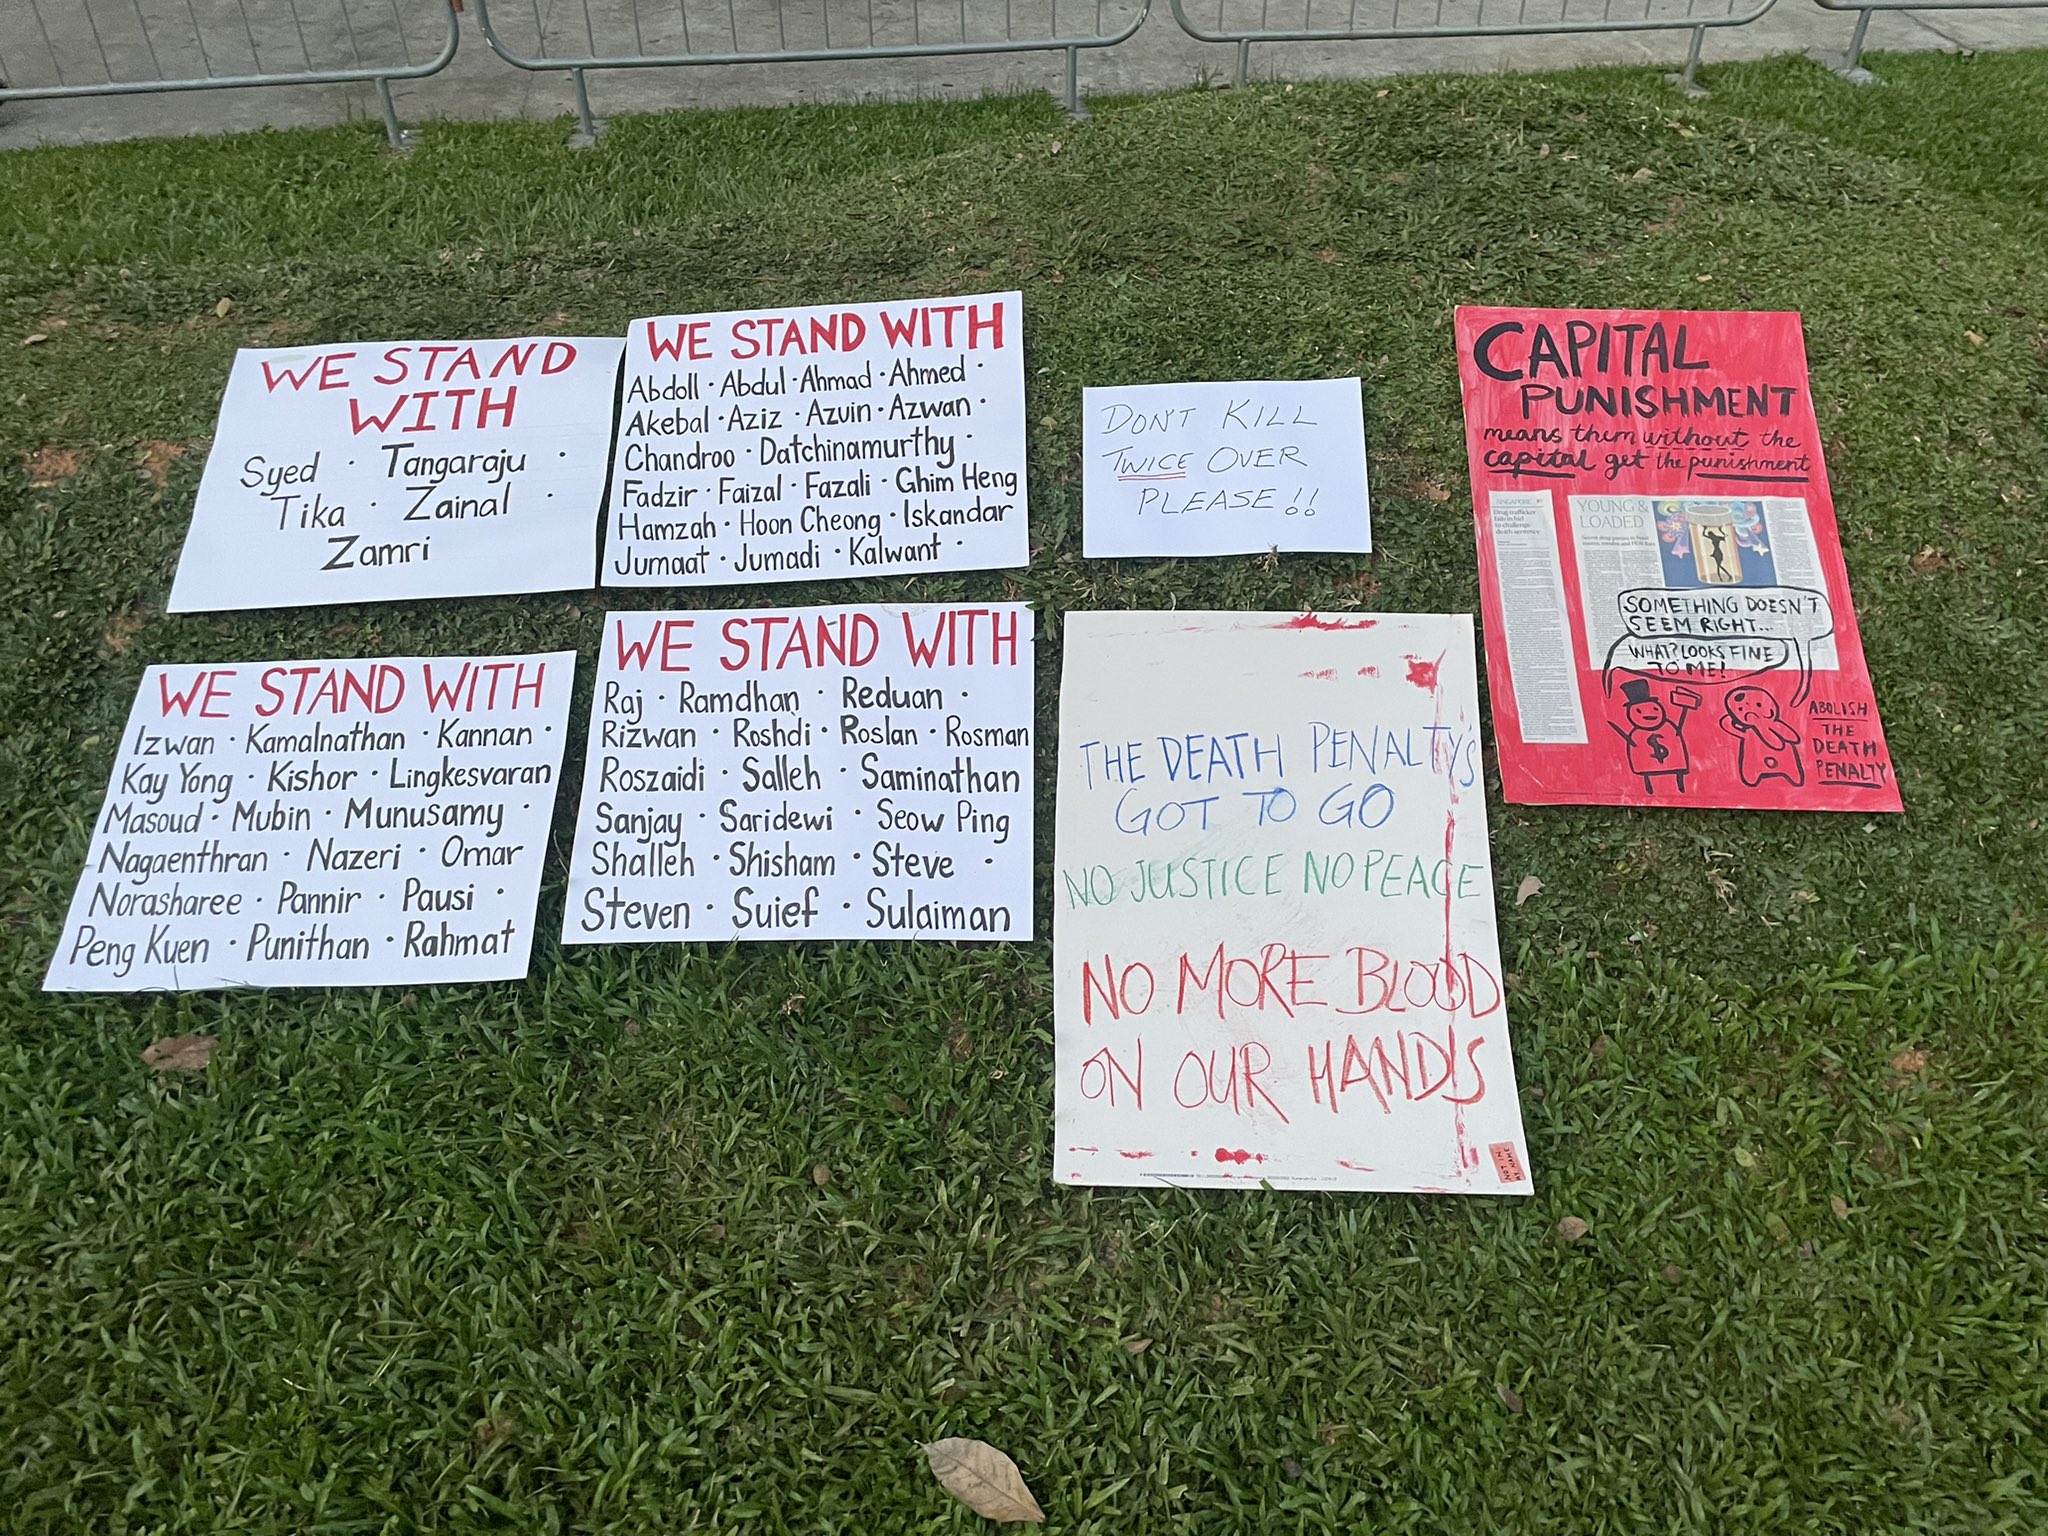 WE STAND
WITH
Syed · Tangaraju ·
Tika · Zainal ·
Zamri
WE STAND WITH
Abdoll · Abdul · Ahmad · Ahmed ·
Akebal · Aziz · Azuin · Azwan ·
Chandroo · Datchinamurthy ·
Fadzir · Faizal · Fazali · Ghim Heng
Hamzah · Hoon Cheong · Iskandar
Jumaat · Jumadi · Kalwant ·
DON'T KILL
TWICE OVER
PLEASE!!
CAPITAL
PUNISHMENT
means them without the
capital get the punishment
SINGAPORE
Drug trafficker
fails in bid
to challenge
death sentence
YOUNG &
LOADED
SOMETHING DOESN'T
SEEM RIGHT...
WHAT? LOOKS FINE
TO ME!
$
ABOLISH
THE
DEATH
PENALTY
WE STAND WITH
Izwan · Kamalnathan · Kannan ·
Kay Yong · Kishor · Lingkesvaran
Masoud · Mubin · Munusamy ·
Nagaenthran · Nazeri · Omar
Norasharee · Pannir · Pausi ·
Peng Kuen · Punithan · Rahmat
WE STAND WITH
Raj · Ramdhan · Reduan ·
Rizwan · Roshdi · Roslan · Rosman
Roszaidi · Salleh · Saminathan
Sanjay · Saridewi · Seow Ping
Shalleh · Shisham · Steve ·
Steven · Suief · Sulaiman
THE DEATH PENALTY'S
GOT TO GO
NO JUSTICE NO PEACE
NO MORE BLOOD
ON OUR HANDS
NOT IN
MY NAME